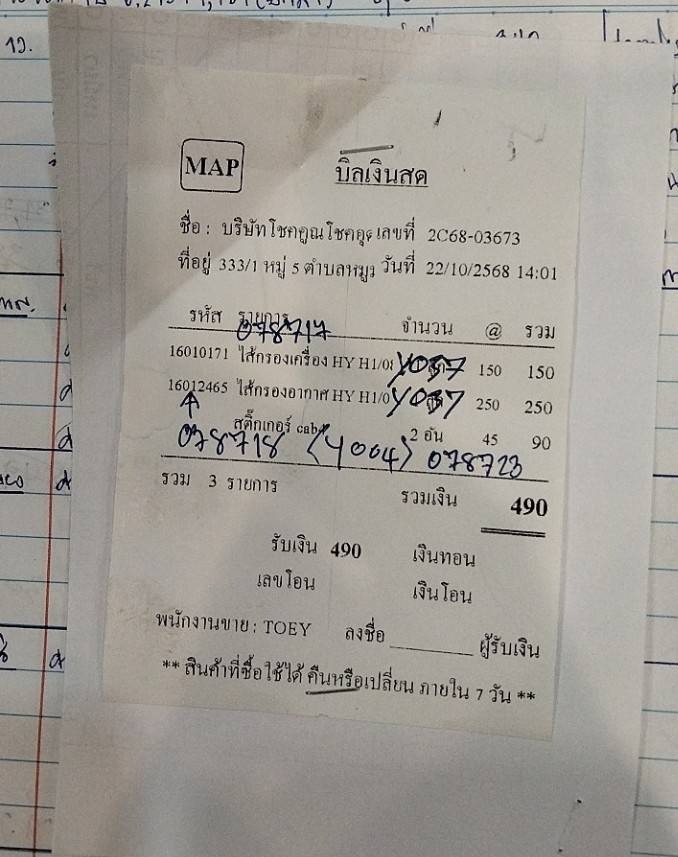 MAP
บิลเงินสด
ชื่อ : บริษัทโชคคูณโชคคูณ เลขที่ 2C68-03673
ที่อยู่ 333/1 หมู่ 5 ตำบล วันที่ 22/10/2568 14:01
รหัส รายการ จำนวน @ รวม
078717
16010171 ไส้กรองเครื่อง HY H1/ Y037 150 150
16012465 ไส้กรองอากาศ HY H1/0 Y037 250 250
สติ๊กเกอร์ cab 2 อัน 45 90
078718 (Y004) 078723
รวม 3 รายการ รวมเงิน 490
รับเงิน 490 เงินทอน
เลขโอน เงินโอน
พนักงานขาย : TOEY ลงชื่อ ผู้รับเงิน
** สินค้าที่ซื้อใช้ได้ คืนหรือเปลี่ยน ภายใน 7 วัน **